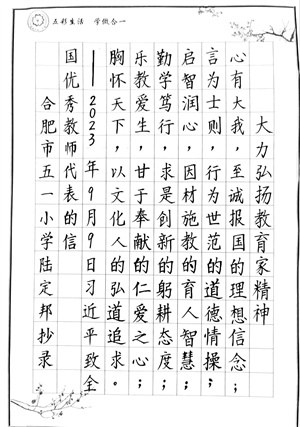 五彩生活 学做合一
大力弘扬教育家精神
心有大我，至诚报国的理想信念；
言为士则，行为世范的道德情操；
启智润心，因材施教的育人智慧；
勤学笃行，求是创新的躬耕态度；
乐教爱生，甘于奉献的仁爱之心；
胸怀天下，以文化人的弘道追求。
——2023年9月9日习近平致全
国优秀教师代表的信
合肥市五一小学陆定邦抄录